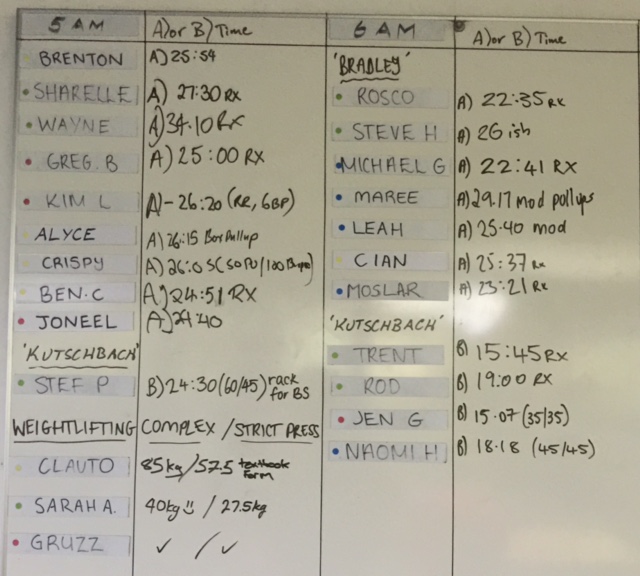 5 AM A) or B) Time
BRENTON A) 25:54
SHARELLE A) 27:30 RX
WAYNE A) 34.10 RX
GREG. B A) 25:00 RX
KIM L A) - 26:20 (RR, 6BP)
ALYCE A) 26:15 Bar Pullup
CRISPY A) 26:0 SC 50 PU/100
BEN.C A) 24:51 RX
JONEEL A) 40
'KUTSCHBACH'
STEF P B) 24:30 (60/45) rack for BS
WEIGHTLIFTING COMPLEX / STRICT PRESS
CLAUTO 85kg/57.5 textbook form
SARAH A. 40kg / 27.5kg
GRUZZ ✓ / ✓
6 AM A) or B) Time
'BRADLEY'
ROSCO A) 22:35 RX
STEVE H A) 26 ish
MICHAEL G A) 22:41 RX
MAREE A) 29.17 mod pullups
LEAH A) 25.40 mod
CIAN A) 25:37 RX
MOSLAR A) 23:21 RX
'KUTSCHBACH'
TRENT B) 15:45 RX
ROD B) 19:00 RX
JEN G B) 15.07 (35/35)
NAOMI H B) 18.18 (45/45)